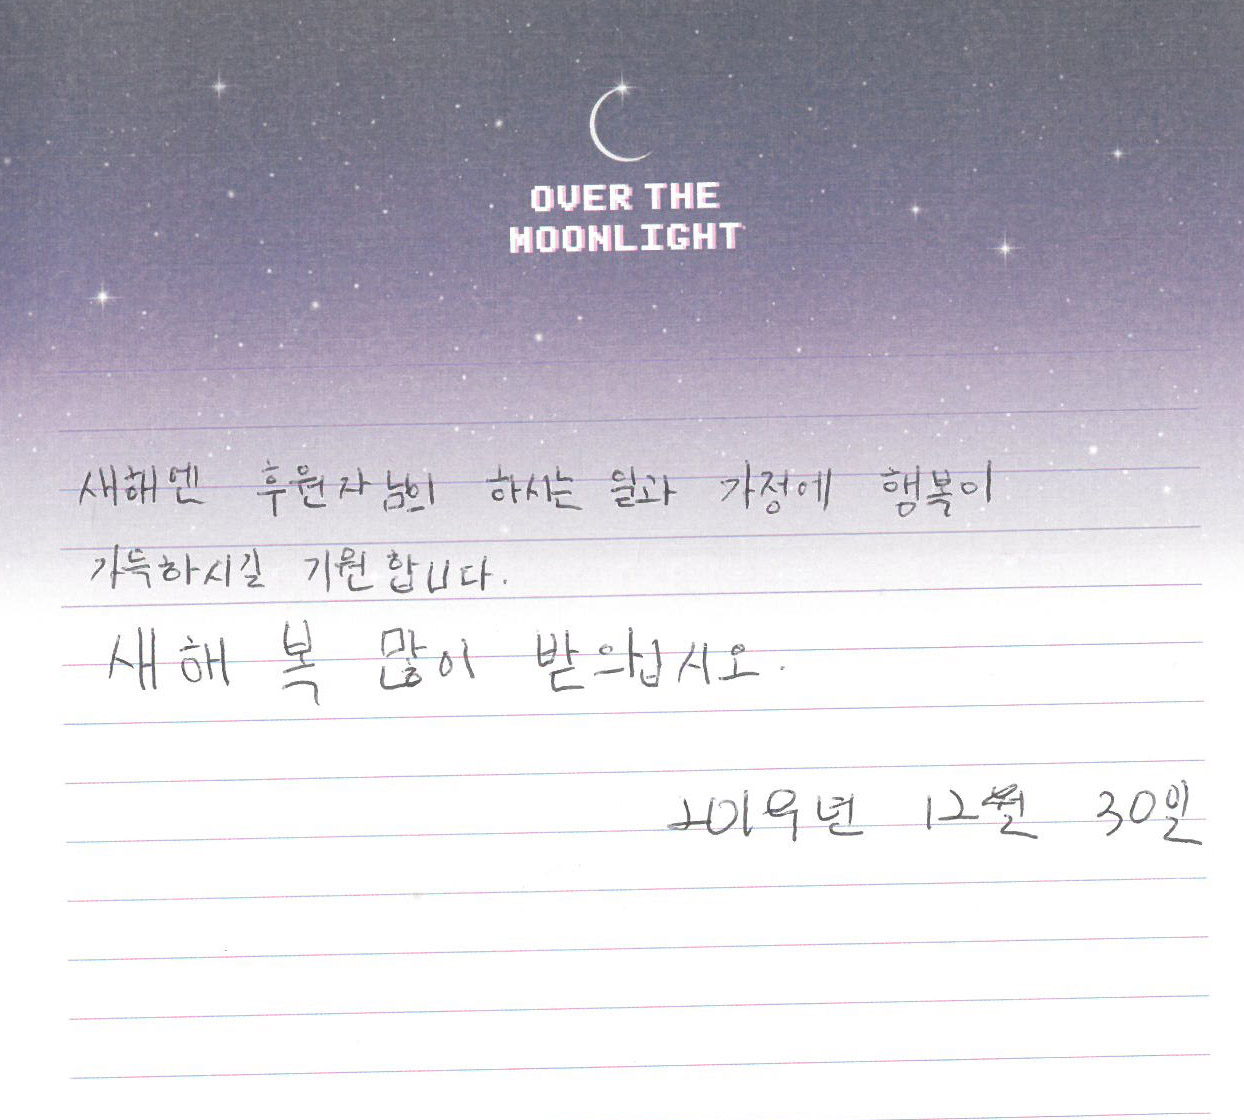 OVER THE
MOONLIGHT
새해엔 후원자님의 하시는 일과 가정에 행복이
가득하시길 기원합니다.
새해 복 많이 받으십시오.
2019년 12월 30일